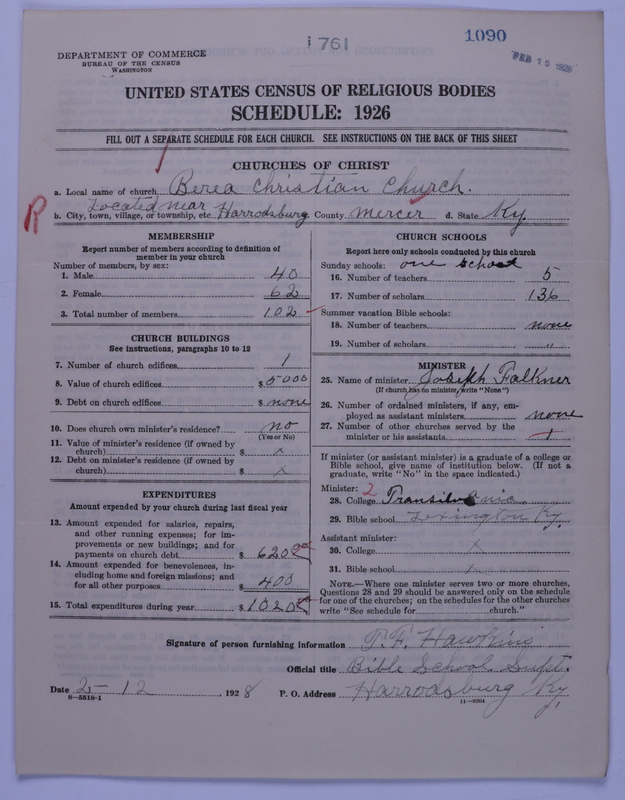 i 761
1090
FEB 15 1928
DEPARTMENT OF COMMERCE
BUREAU OF THE CENSUS
WASHINGTON
UNITED STATES CENSUS OF RELIGIOUS BODIES
SCHEDULE: 1926
FILL OUT A SEPARATE SCHEDULE FOR EACH CHURCH. SEE INSTRUCTIONS ON THE BACK OF THIS SHEET
CHURCHES OF CHRIST
a. Local name of church Berea Christian Church.
Located near
R
b. City, town, village, or township, etc. Harrodsburg County Mercer d. State Ky.
MEMBERSHIP
Report number of members according to definition of
member in your church
Number of members, by sex:
1. Male 40
2. Female 62
3. Total number of members 102
CHURCH BUILDINGS
See instructions, paragraphs 10 to 12
7. Number of church edifices 1
8. Value of church edifices $ 5000
9. Debt on church edifices $ none
10. Does church own minister's residence? no
(Yes or No)
11. Value of minister's residence (if owned by
church) $ x
12. Debt on minister's residence (if owned by
church) $ x
EXPENDITURES
Amount expended by your church during last fiscal year
13. Amount expended for salaries, repairs,
and other running expenses; for im-
provements or new buildings; and for
payments on church debt $ 620
14. Amount expended for benevolences, in-
cluding home and foreign missions; and
for all other purposes $ 400
15. Total expenditures during year $ 1020
CHURCH SCHOOLS
Report here only schools conducted by this church
Sunday schools: one school
16. Number of teachers 5
17. Number of scholars 136
Summer vacation Bible schools:
18. Number of teachers none
19. Number of scholars "
MINISTER
25. Name of minister Joseph Falkner
(If church has no minister, write "None")
26. Number of ordained ministers, if any, em-
ployed as assistant ministers none
27. Number of other churches served by the
minister or his assistants 1
If minister (or assistant minister) is a graduate of a college or
Bible school, give name of institution below. (If not a
graduate, write "No" in the space indicated.)
Minister: 2
28. College Transilvania
29. Bible school Lexington Ky
Assistant minister:
30. College x
31. Bible school
NOTE.—Where one minister serves two or more churches,
Questions 28 and 29 should be answered only on the schedule
for one of the churches; on the schedules for the other churches
write "See schedule for church."
Signature of person furnishing information P.F. Hawkins
Official title Bible School Supt.
Date 2-12, 1928 P. O. Address Harrodsburg Ky,
8-5518-1
11-9204